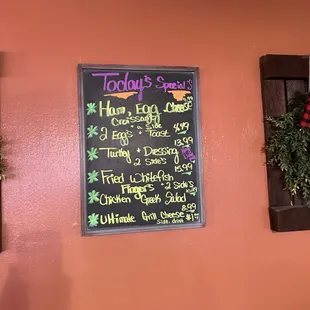 Today's Special's
Ham, Egg, Cheese
Croissant
+ Side
8.49
2 Egg's + Toast
13.99
Turkey + Dressing
2 Side's
15.99
Fried Whitefish
Fingers + 2 Side's
Chicken Greek Salad
8.99
Ultimate Grill Cheese
Side, drink